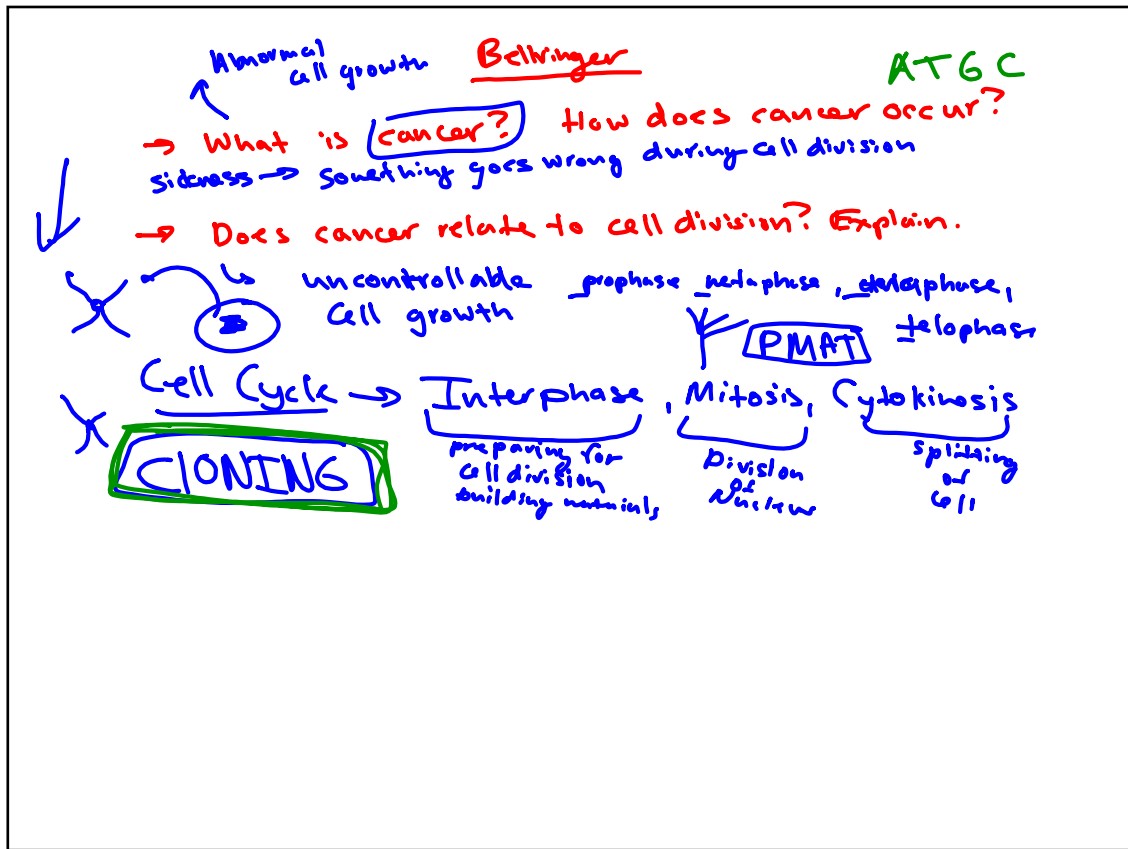 Abnormal
cell growth
Bellringer
ATGC
→ What is cancer? How does cancer occur?
sickness → something goes wrong during cell division
→ Does cancer relate to cell division? Explain.
uncontrollable
Cell growth
prophase metaphase,
telophase
PMAT
Cell Cycle → Interphase, Mitosis, Cytokinosis
preparing for
cell division
building materials
Division
of
Nucleus
splitting
of
cell
ClONING